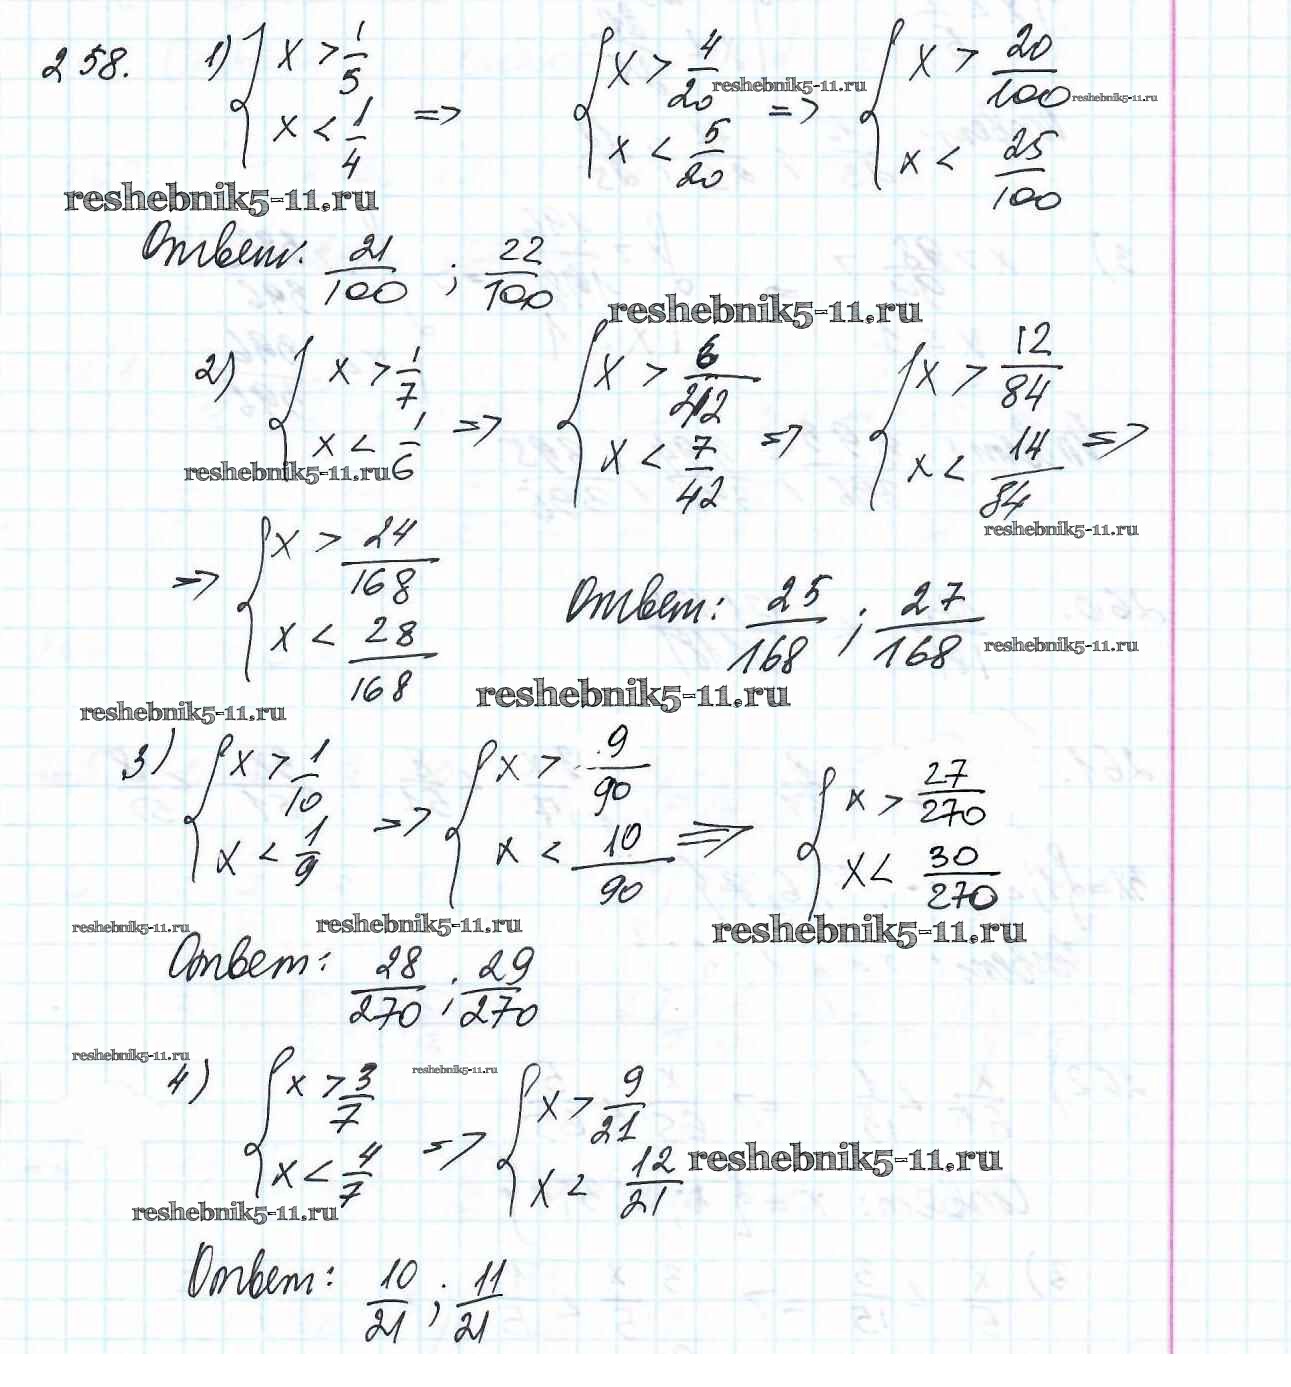 258. 1) { x > 1/5 ; x < 1/4 => { x > 4/20 ; x < 5/20 => { x > 20/100 ; x < 25/100
reshebnik5-11.ru
reshebnik5-11.ru
reshebnik5-11.ru
Ответ: 21/100 ; 22/100
reshebnik5-11.ru
2) { x > 1/7 ; x < 1/6 => { x > 6/42 ; x < 7/42 => { x > 12/84 ; x < 14/84 =>
reshebnik5-11.ru
reshebnik5-11.ru
=> { x > 24/168 ; x < 28/168
Ответ: 25/168 ; 27/168
reshebnik5-11.ru
reshebnik5-11.ru
reshebnik5-11.ru
3) { x > 1/10 ; x < 1/9 => { x > 9/90 ; x < 10/90 => { x > 27/270 ; x < 30/270
reshebnik5-11.ru
reshebnik5-11.ru
reshebnik5-11.ru
Ответ: 28/270 ; 29/270
reshebnik5-11.ru
reshebnik5-11.ru
4) { x > 3/7 ; x < 4/7 => { x > 9/21 ; x < 12/21
reshebnik5-11.ru
reshebnik5-11.ru
Ответ: 10/21 ; 11/21